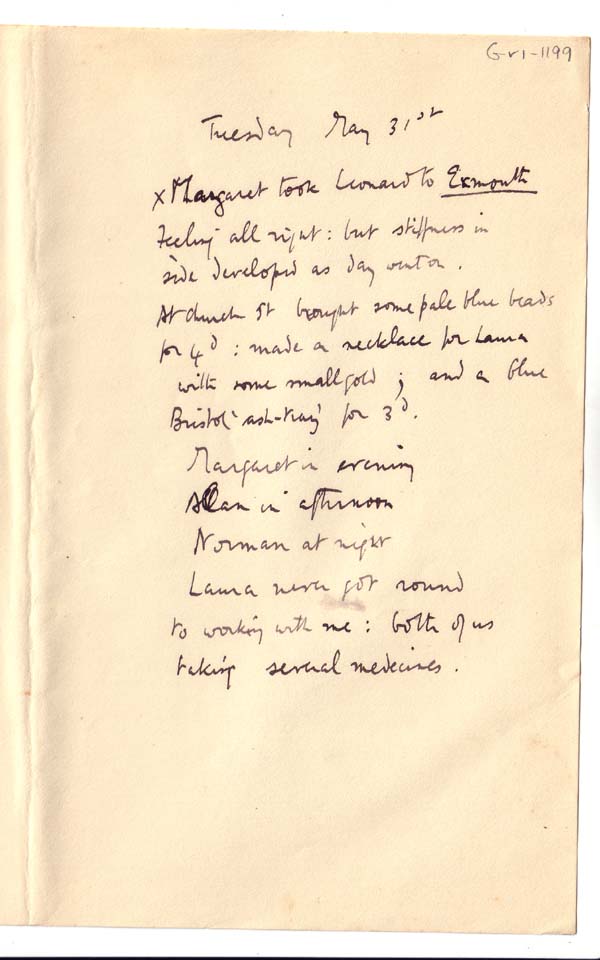 G-v1-1199
Tuesday May 31st
x Margaret took Leonard to Exmouth
Feeling all right: but stiffness in
side developed as day went on.
At church St bought some pale blue beads
for 4d: made a necklace for Laura
with some small gold; and a blue
Bristol ash-tray for 3d.
Margaret in evening
Alan in afternoon
Norman at night
Laura never got round
to working with me: both of us
taking several medecines.